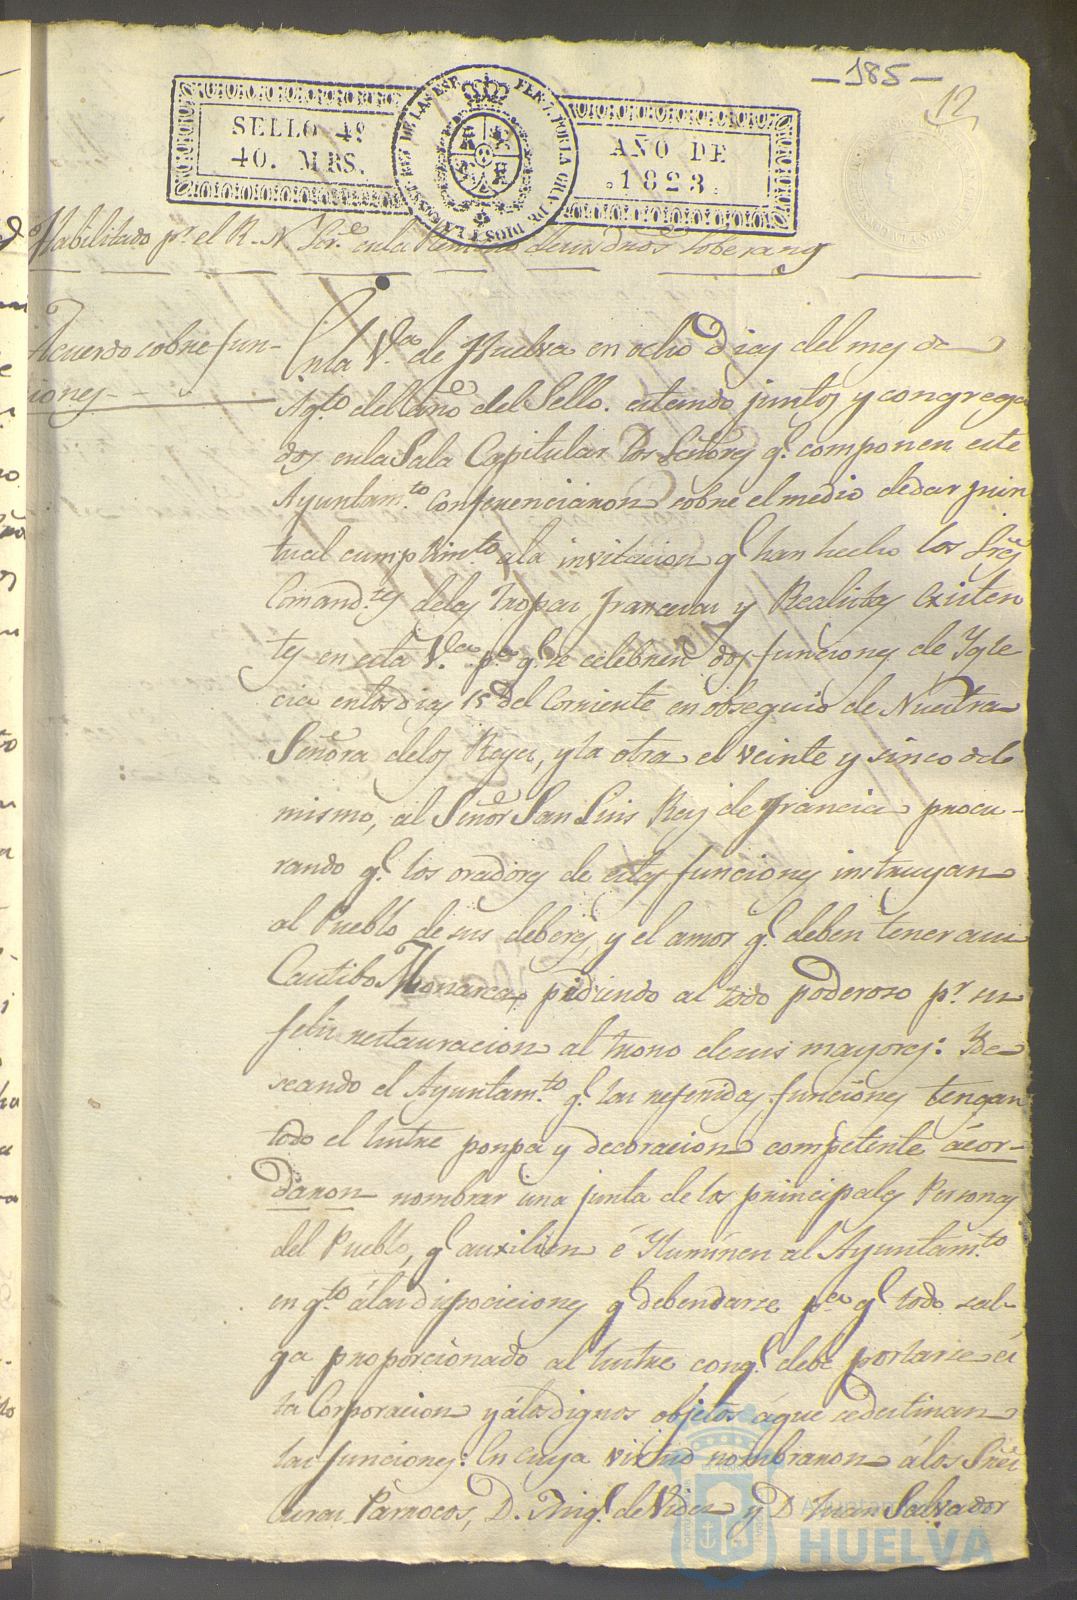 -185-
12
SELLO 4º
40. MRS.
AÑO DE
1823.
FER. 7. POR LA GRA. DE DIOS Y LA
REY DE LAS ESP.
Habilitado pr. el R. N. Sor. en la
soberang
Acuerdo sobre fun-
ciones
En la Va. de Huelva en ocho dias del mes de
Agto del año del Sello. estando juntos y congrega
dos en la Sala Capitular los Señores q. componen este
Ayuntamto. Conferenciaron sobre el medio de dar pun
tual cumplimto. a la invitacion q. han hecho los Sres
Comandtes de las tropas francesas y Realistas existen
tes en esta Va. pa. q. se celebren dos funciones de Ygle
cia en los dias 15 del Corriente en obsequio de Nuestra
Señora de los Reyes, y la otra el veinte y sinco del
mismo, al Señor San Luis Rey de Francia procu-
rando q. los oradores de estas funciones instruyan
al Pueblo de sus deberes, y el amor q. deben tener a su
Cautibo Monarca, pidiendo al todo poderoso pr. su
felis restauracion al trono de sus mayores: Y de
seando el Ayuntamto. q. las referidas funciones tengan
todo el lustre ponpa y decoracion competente acor-
daron nombrar una junta de los principales Personas
del Pueblo, q. auxilien é Yluminen al Ayuntamto.
en qto. á las dispociciones q. deben darse pa. q. todo sal-
ga proporcionado al lustre con q. debe portarse
la Corporacion y á los dignos objetos á que se destinan
las funciones: En cuya virtud nombraron á los Sres
Curas Parrocos, D. Migl. de Vides y D. Juan Salvador
Ayuntamiento
HUELVA